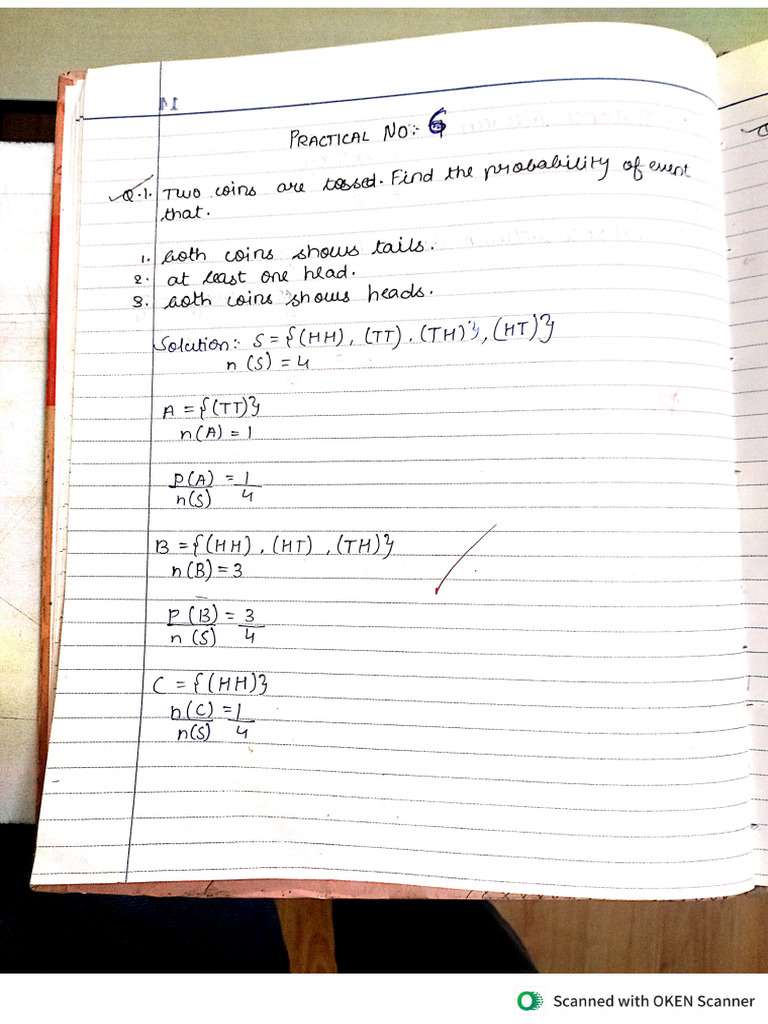 PRACTICAL NO:- 6
Q.1. Two coins are tossed. Find the probability of event
that.
1. both coins shows tails.
2. at least one head.
3. both coins shows heads.
Solution:- S = {(HH), (TT), (TH)}, (HT)}
n(S) = 4
A = {(TT)}
n(A) = 1
P(A) = 1
n(S) 4
B = {(HH), (HT), (TH)}
n(B) = 3
P(B) = 3
n(S) 4
C = {(HH)}
n(C) = 1
n(S) 4
Scanned with OKEN Scanner